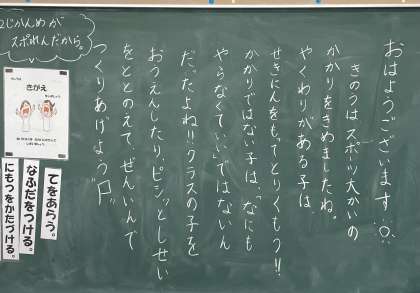 おはようございます
きのうはスポーツ大かいの
かかりをきめましたね。
やくわりがある子は、
せきにんをもってとりくもう!!
かかりではない子は、「なにも
やらなくていい」ではないん
だったよね!!クラスの子を
おうえんしたり、ピシッとしせい
をととのえて、ぜんいんで
つくりあげよう
2じかんめが
スポれんだから。
きがえ
てをあらう。
なふだをつける。
にもつをかたづける。